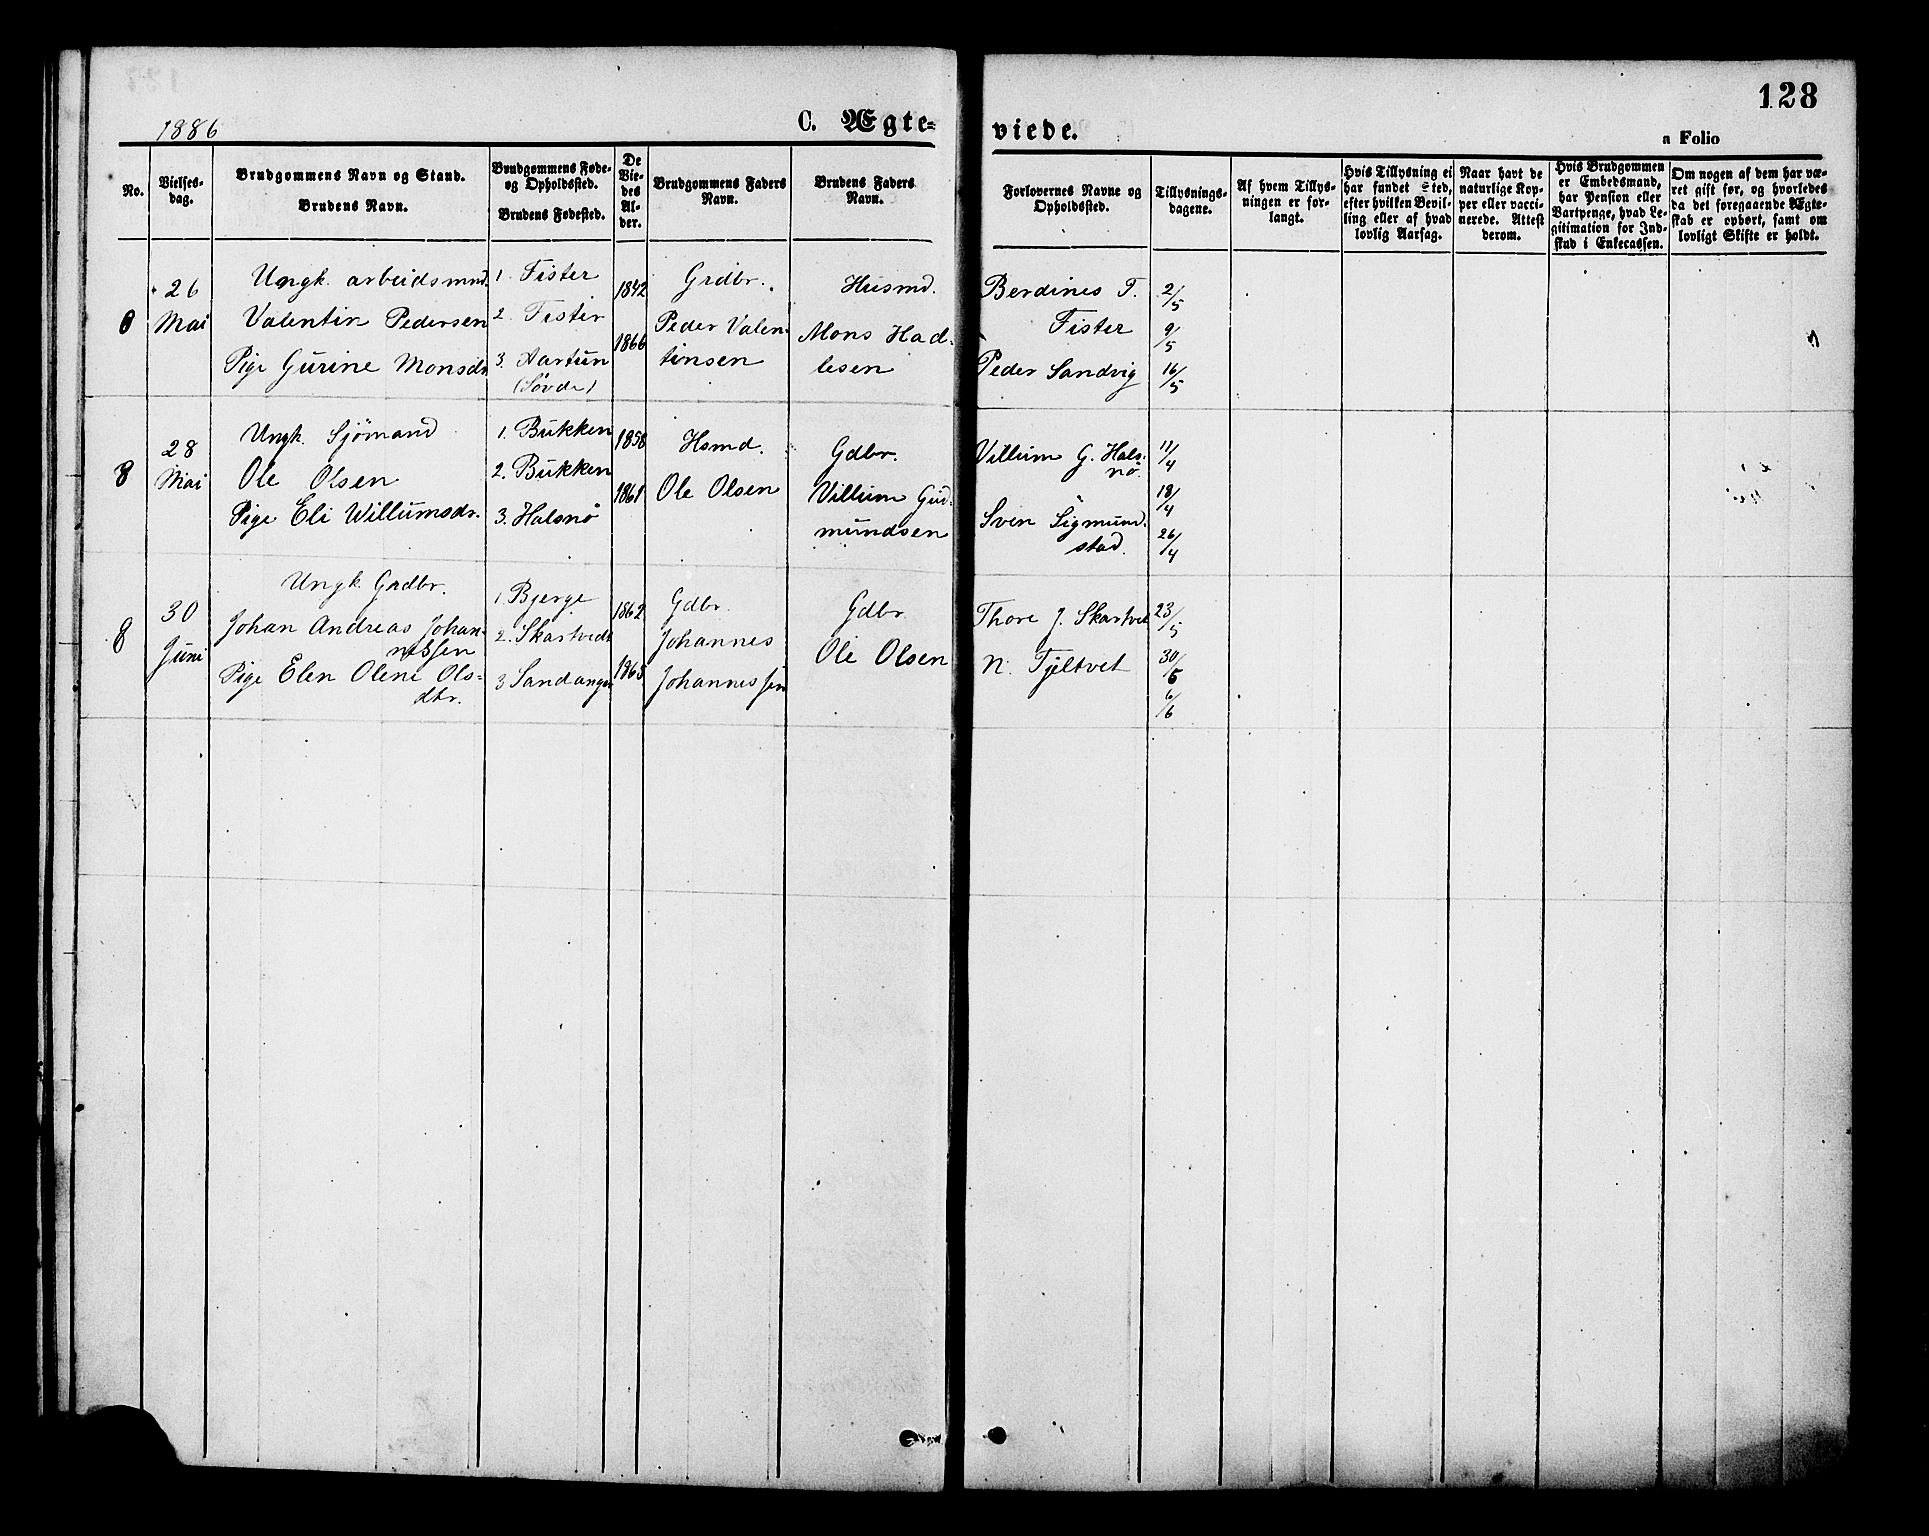 1886
C. Ægte-
viede.
128
a Folio
No.
Vielses-
dag.
Brudgommens Navn og Stand.
Brudens Navn.
Brudgommens Føde-
og Opholdssted.
Brudens Fødested.
De
Vie-
des
Al-
der.
Brudgommens Faders
Navn.
Brudens Faders
Navn.
Forlovernes Navne og
Opholdssted.
Tillysnings-
dagene.
Af hvem Tillys-
ningen er for-
langt.
Hvis Tillysning ei
har fundet Sted,
efter hvilken Bevil-
ling eller af hvad
lovlig Aarsag.
Naar havt de
naturlige Kop-
per eller vacci-
nerede. Attest
derom.
Hvis Brudgommen
er Embedsmand,
har Pension eller
Vartpenge, hvad Le-
gitimation for Ind-
skud i Enkecassen.
Om nogen af dem har væ-
ret gift før, og hvorledes
da det foregaaende Ægte-
skab er ophørt, samt om
lovligt Skifte er holdt.
26
Mai
Ungk. arbeidsmnd.
Valentin Pedersen
Pige Gurine Monsdr
1. Fister
2. Fister
3. Aartun
(Søvde)
1842
1866
Grdbr.
Peder Valen-
tinsen
Husmd.
Mons Had-
lesen
Berdines T.
Fister
Peder Sandvig
2/5
9/5
16/5
8
28
Mai
Ungk. Sjömand
Ole Olsen
Pige Eli Willumsdr.
1. Bukken
2. Bukken
3. Halsnö
1858
1861
Hsmd.
Ole Olsen
Gdbr.
Villum Gud-
mundsen
Villum G. Hals-
nö.
Sven Sigmund-
stad.
11/4
18/4
26/4
8
30
Juni
Ungk. Grdbr.
Johan Andreas Johan-
nessen
Pige Elen Olene Ols-
dtr.
1. Bjerge
2. Skartvedt
3 Sandanger
1862
1865
Gdbr.
Johannes
Johannessen
Gdbr
Ole Olsen
Thore J. Skartvet
N. Tjeltvet
23/5
30/5
6/6